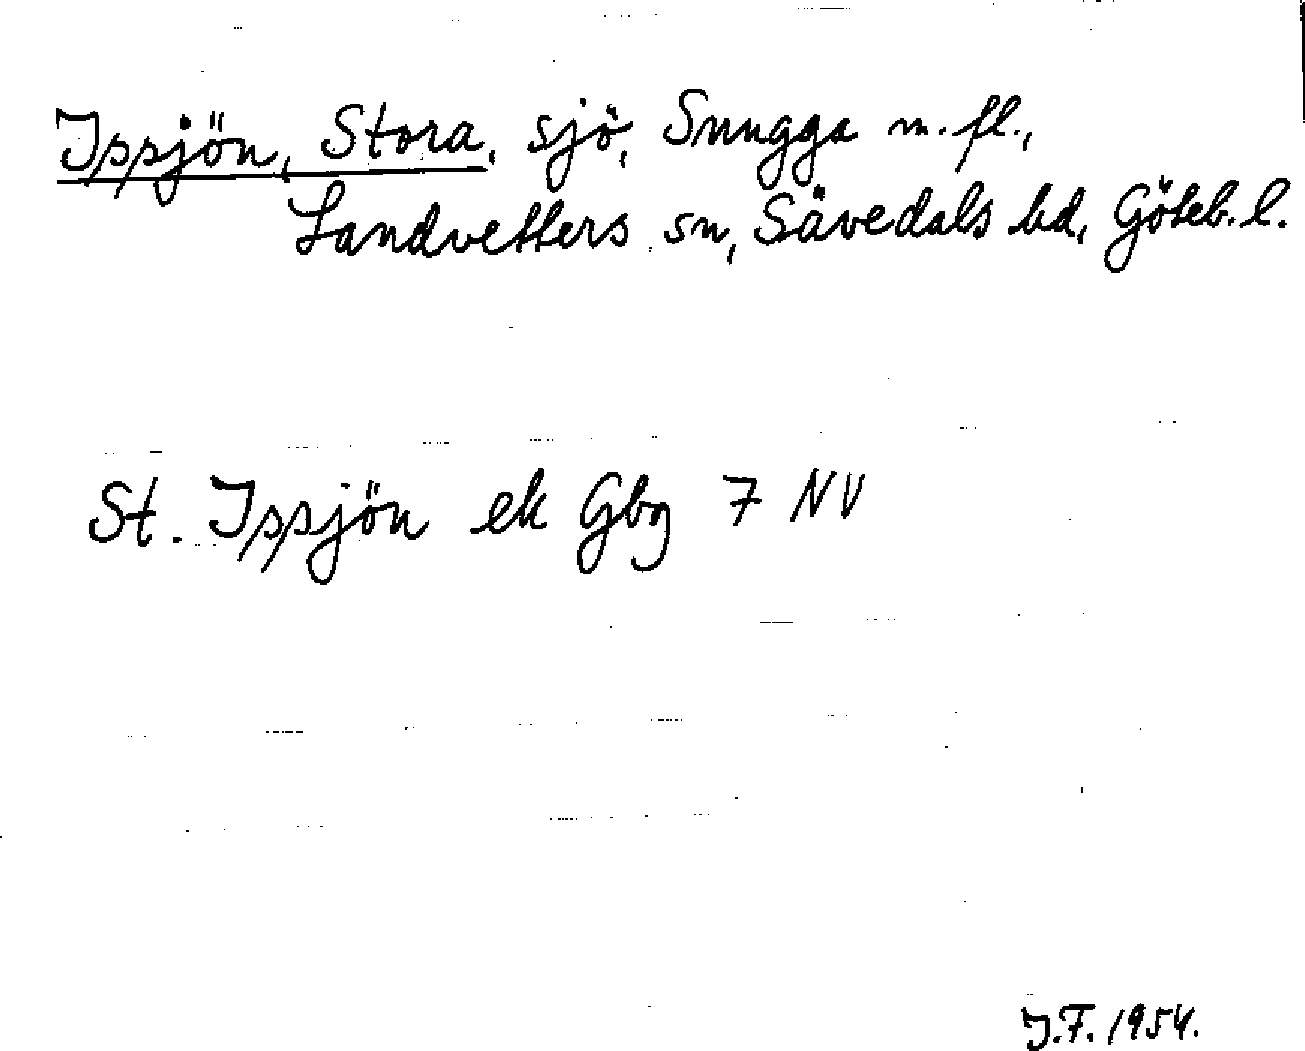 Ippjön, Stora, sjö, Snugga m. fl.,
Landvetters sn, Sävedals hd, Göteb. l.
St. Ippjön ek Gbg 7 NV
J.F. 1954.